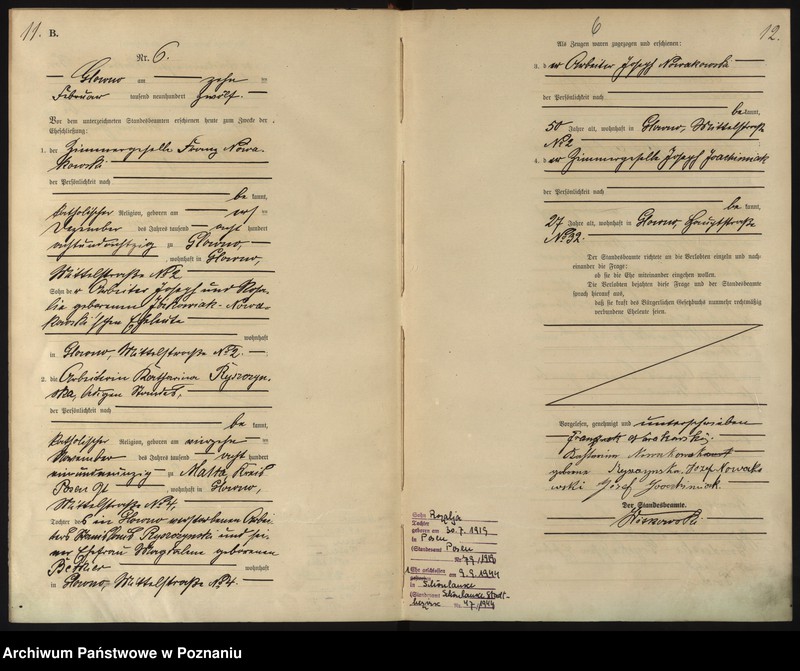 11.
B.
Nr. 6.
Glowno am zehn ten
Februar tausend neunhundert zwölf.
Vor dem unterzeichneten Standesbeamten erschienen heute zum Zwecke der
Eheschließung:
1. der Zimmergeselle Franz Nowa-
kowski
der Persönlichkeit nach
be kannt,
katholischer Religion, geboren am
Dezember des Jahres tausend acht hundert
achtundachtzig zu Glowno,
, wohnhaft in Glowno,
Mittelstraße No 2
Sohn der Arbeiter Joseph und Rosa-
lie geborenen Nowa-
kowski'schen Eheleute
wohnhaft
in Glowno, Mittelstraße No 2.
2. die Arbeiterin Katharina Ryszczyn-
ska, ledigen Standes,
der Persönlichkeit nach
be kannt,
katholischer Religion, geboren am
November des Jahres tausend acht hundert
einundneunzig zu Malta, Kreis
Posen Ost, wohnhaft in Glowno,
Mittelstraße No 4,
Tochter des in Glowno verstorbenen Arbei-
ters Ryszczynski und sei-
ner Ehefrau Magdalena geborenen
wohnhaft
in Glowno, Mittelstraße No 4.
6
12.
Als Zeugen waren zugezogen und erschienen:
3. der Arbeiter Joseph Nowakowski
der Persönlichkeit nach
be kannt,
50 Jahre alt, wohnhaft in Glowno, Mittelstraße
No 2
4. der Zimmergeselle Joseph Joachimiak
der Persönlichkeit nach
be kannt,
27 Jahre alt, wohnhaft in Glowno, Hauptstraße
No 32.
Der Standesbeamte richtete an die Verlobten einzeln und nach-
einander die Frage:
ob sie die Ehe miteinander eingehen wollen.
Die Verlobten bejahten diese Frage und der Standesbeamte
sprach hierauf aus,
daß sie kraft des Bürgerlichen Gesetzbuchs nunmehr rechtmäßig
verbundene Eheleute seien.
Vorgelesen, genehmigt und unterschrieben
Franciszek Nowakowski.
Katharina Nowakowska
geborene Ryszczynska. Józef Nowako
wski Józef Joachimiak.
Der Standesbeamte.
Sohn Rozalja
Tochter
geboren am 30.7.1919
in Posen
(Standesamt Posen
Nr. 79/1919)
1 Ehe geschlossen am 9.9.1944
in Schönlanke
(Standesamt Schönlanke Stadt-
bezirk Nr. 47/1944
Archiwum Państwowe w Poznaniu